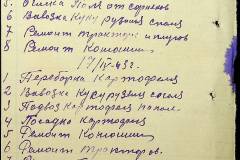 5. Очистка Полл от сорняков
6 Вывозка Кукурузных стеб
7 Ремонт трактора и плугов
8 Ремонт Конюшни
17/IV-43 г.
1 Переборка Картофеля
2 Вывозка Кукурузных стебл
3 Подвоз картофеля на поле
4 Посадка картофеля
5 Ремонт Конюшни
6 Ремонт тракторов.